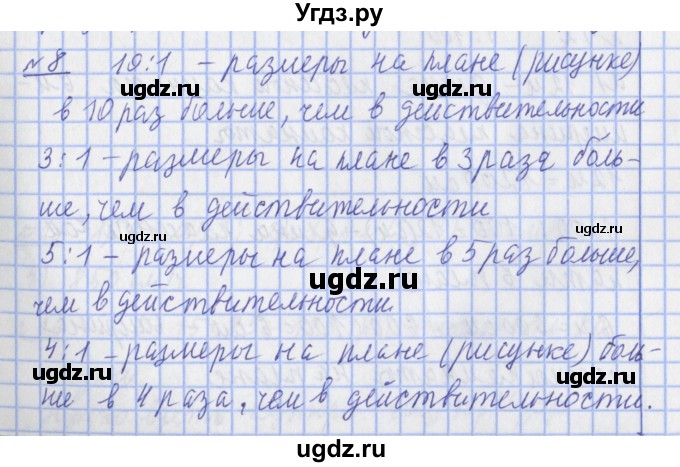 Угдз.ру
№8 10:1 – размеры на плане (рисунке)
в 10 раз больше, чем в действительности
3:1 – размеры на плане в 3 раза боль-
ше, чем в действительности
ugdz.ru ugdz.ru
5:1 – размеры на плане в 5 раз больше,
ugdz.ru
чем в действительности.
4:1 – размеры на плане (рисунке) боль-
ugdz.ru ugdz.ru
ше в 4 раза, чем в действительности.
ugdz.ru